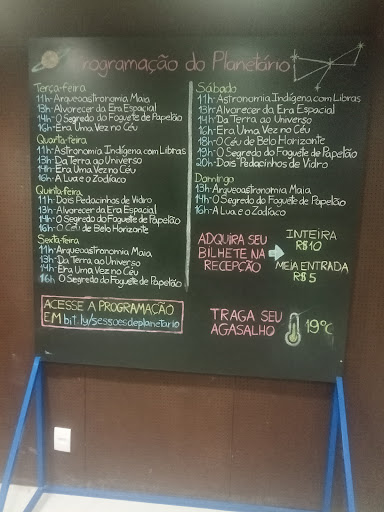 Programação do Planetário
Terça-feira
11h-Arqueoastronomia Maia
13h-Alvorecer da Era Espacial
14h-O Segredo do Foguete de Papelão
16h-Era Uma Vez no Céu
Quarta-feira
11h-Astronomia Indígena, com Libras
13h-Da Terra ao Universo
14h-Era Uma Vez no Céu
16h-A Lua e o Zodíaco
Quinta-feira
11h-Dois Pedacinhos de Vidro
13h-Alvorecer da Era Espacial
14h-O Segredo do Foguete de Papelão
16h-O Céu de Belo Horizonte
Sexta-feira
11h-Arqueoastronomia Maia
13h-Da Terra ao Universo
14h-Era Uma Vez no Céu
16h-O Segredo do Foguete de Papelão
ACESSE A PROGRAMAÇÃO
EM bit.ly/sessoesdeplanetario
Sábado
11h-Astronomia Indígena, com Libras
13h-Alvorecer da Era Espacial
14h-Da Terra ao Universo
16h-Era Uma Vez no Céu
18h-O Céu de Belo Horizonte
19h-O Segredo do Foguete de Papelão
20h-Dois Pedacinhos de Vidro
Domingo
13h-Arqueoastronomia Maia
14h-O Segredo do Foguete de Papelão
16h-A Lua e o Zodíaco
ADQUIRA SEU
BILHETE NA
RECEPÇÃO
INTEIRA
R$10
MEIA ENTRADA
R$5
TRAGA SEU
AGASALHO
19°C